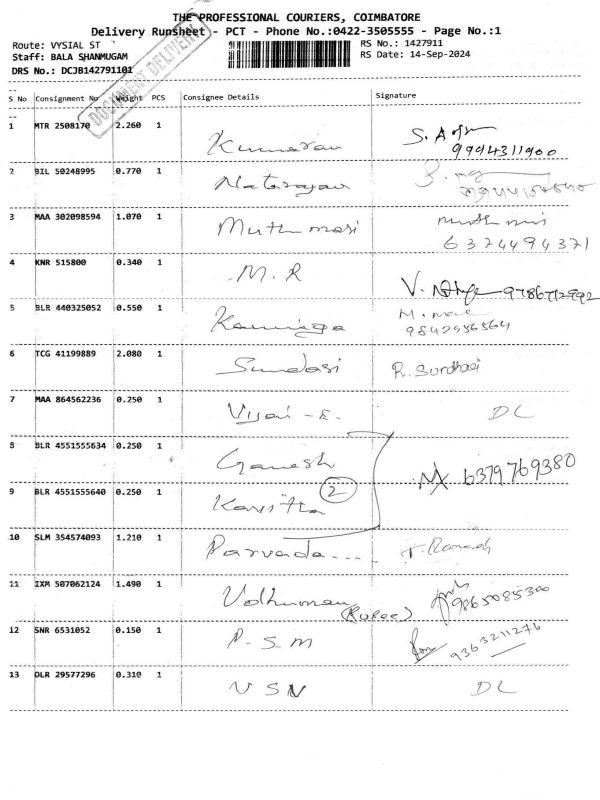 THE PROFESSIONAL COURIERS, COIMBATORE
Delivery Runsheet - PCT - Phone No.:0422-3505555 - Page No.:1
Route: VYSIAL ST
RS No.: 1427911
Staff: BALA SHANMUGAM
RS Date: 14-Sep-2024
DRS No.: DCJB142791101
DOCUMENT DELIVERY
S No Consignment No Weight PCS Consignee Details Signature
1 MTR 2508170 2.260 1 Kumaran S.
9994311900
2 BIL 50248995 0.770 1 Natarajan
3 MAA 302098594 1.070 1 Muthu mari
6374494371
4 KNR 515800 0.340 1 M. R V. 9786712992
5 BLR 440325052 0.550 1 M.
9842956564
6 TCG 41199889 2.080 1 Sundari R. Sundhari
7 MAA 864562236 0.250 1 Vijai - E. DL
8 BLR 4551555634 0.250 1 Ganesh
6379769380
9 BLR 4551555640 0.250 1 Kavitha 2
10 SLM 354574093 1.210 1 Parvada... T. Ramesh
11 IXM 507062124 1.490 1 (Rupee) 9865085300
12 SNR 6531052 0.150 1 P. S. M 9363211276
13 DLR 29577296 0.310 1 V S V DL